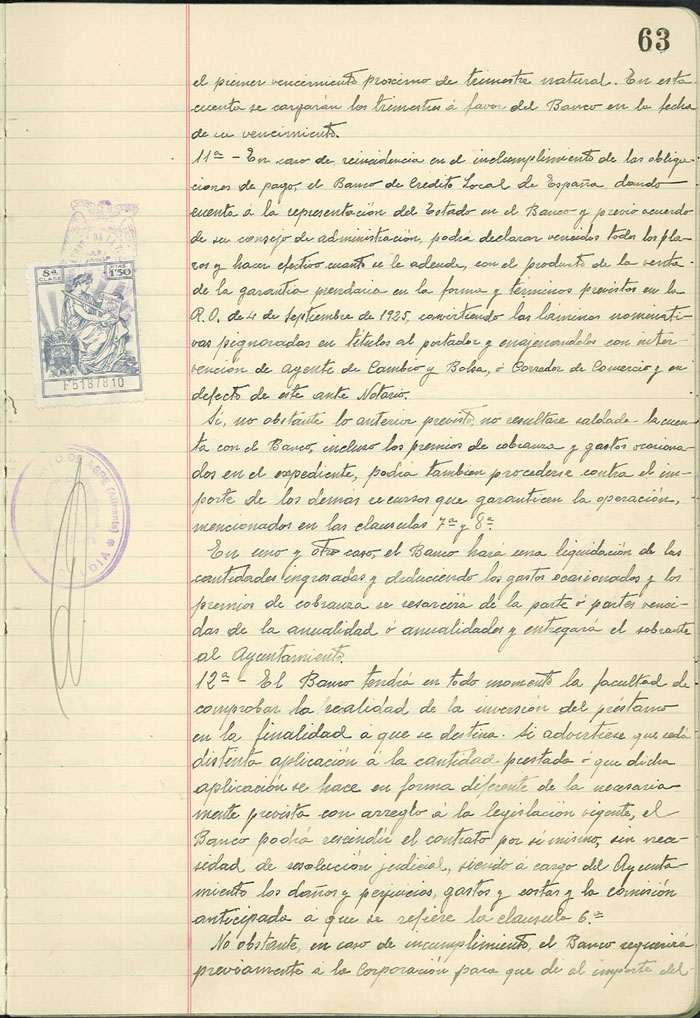 63
el primer vencimiento proximo de trimestre natural. En esta
cuenta se cargarán los trimestres á favor del Banco en la fecha
de su vencimiento.
11ª - En caso de reincidencia en el incumplimiento de las obliga-
ciones de pago, el Banco de Credito Local de España, dando
cuenta á la representación del Estado en el Banco y previo acuerdo
de su consejo de administración, podrá declarar vencidos todos los pla-
zos y hacer efectivo cuanto se le adeude, con el producto de la venta
de la garantia prendaria en la forma y términos previstos en la
R.O. de 4 de Septiembre de 1925, convirtiendo las láminas nominati-
vas pignoradas en titulos al portador y enajenandolos con inter-
vención de Agente de Cambio y Bolsa, ó Corredor de Comercio y en
defecto de este ante Notario.
Si, no obstante lo anterior previsto, no resultare saldada la cuen-
ta con el Banco, incluso los premios de cobranza y gastos ocasiona-
dos en el expediente, podrá tambien procederse contra el im-
porte de los demás recursos que garanticen la operación,
mencionados en las clausulas 7ª y 8ª.
En uno y otro caso, el Banco hará una liquidación de las
cantidades ingresadas y deduciendo los gastos ocasionados y los
premios de cobranza se resarcirá de la parte ó partes venci-
das de la anualidad ó anualidades y entregará el sobrante
al Ayuntamiento.
12ª - El Banco tendrá en todo momento la facultad de
comprobar la realidad de la inversión del préstamo
en la finalidad á que se destina. Si advirtiese que se dá
distinta aplicación á la cantidad prestada ó que dicha
aplicación se hace en forma diferente de la necesaria-
mente prevista con arreglo á la legislación vigente, el
Banco podrá rescindir el contrato por si mismo, sin nece-
sidad de resolución judicial, siendo á cargo del Ayunta-
miento los daños y perjuicios, gastos y costas y la comisión
anticipada á que se refiere la clausula 6.ª
No obstante, en caso de incumplimiento, el Banco requerirá
previamente á la Corporación para que dé al importe del
8ª
CLASE
1'50
F5187810